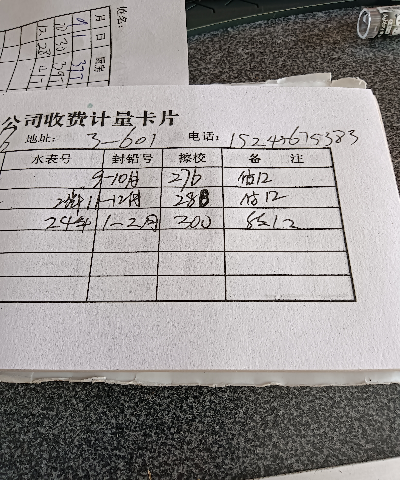 姓名:
月 日
公司收费计量卡片
地址: 3-601 电话: 15243675383
水表号 封铅号 擦校 备 注
9-10月 276 估12
23年11-12月 288 估12
24年 1-2月 300 估12